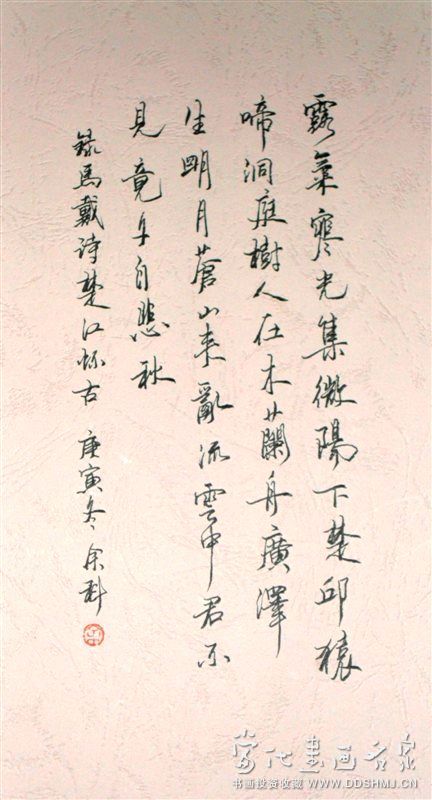 露氣寒光集微陽下楚邱猿
啼洞庭樹人在木蘭舟廣澤
生明月蒼山夾亂流雲中君不
見竟夕自悲秋
錄馬戴诗楚江怀古 庚寅冬 余科
當代書画名家
书画投资收藏 WWW.DDSHMJ.CN